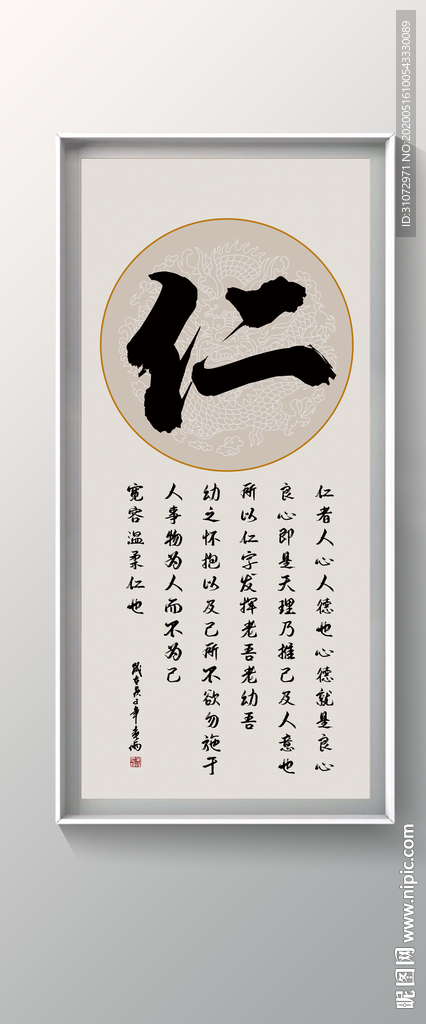 仁
仁者人心人德也心德就是良心
良心即是天理乃推己及人意也
所以仁字发挥老吾老幼吾
幼之怀抱以及己所不欲勿施于
人事物为人而不为己
宽容温柔仁也
ID:31072971 NO:20200516100543330089
昵图网 www.nipic.com